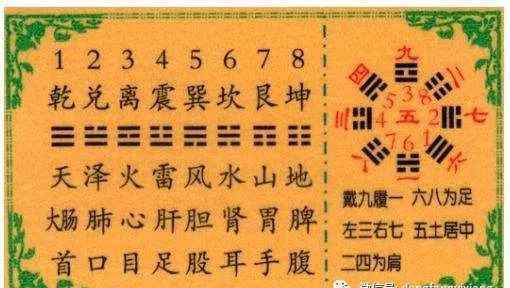 1 2 3 4 5 6 7 8
乾 兑 离 震 巽 坎 艮 坤
天 泽 火 雷 风 水 山 地
大肠 肺 心 肝 胆 肾 胃 脾
首 口 目 足 股 耳 手 腹
九
四 二
5 3 8
三 4 五 2 七
7 6 1
八 一 六
戴九履一 六八为足
左三右七 五土居中
二四为肩